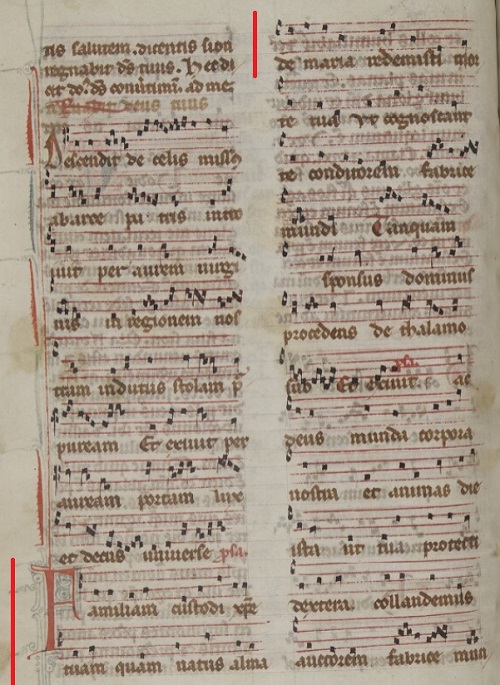 tis salutem. dicentis sion
regnabit ds tuus. Et di
cit do. ds convitim. ad me
deus tuus
Descendit de celis missus
ab arce pa tris intro
iuit per aurem uirgi
nis in regionem nos
tram indutus stolam p̄
puream Et exiuit per
auream portam lux
et decus uniuerse psa.
Familiam custodi xp̄e
tuam quam natus alma
de maria redemisti mor
te tua ut cognoscant
te conditorem fabrice
mundi Tanquam
sponsus dominus
procedens de thalamo
suo Et exiuit. ps. Ac
deus munda corpora
nostra et animas die
ista ut tua protecti
dextera collaudemus
auctorem fabrice mun